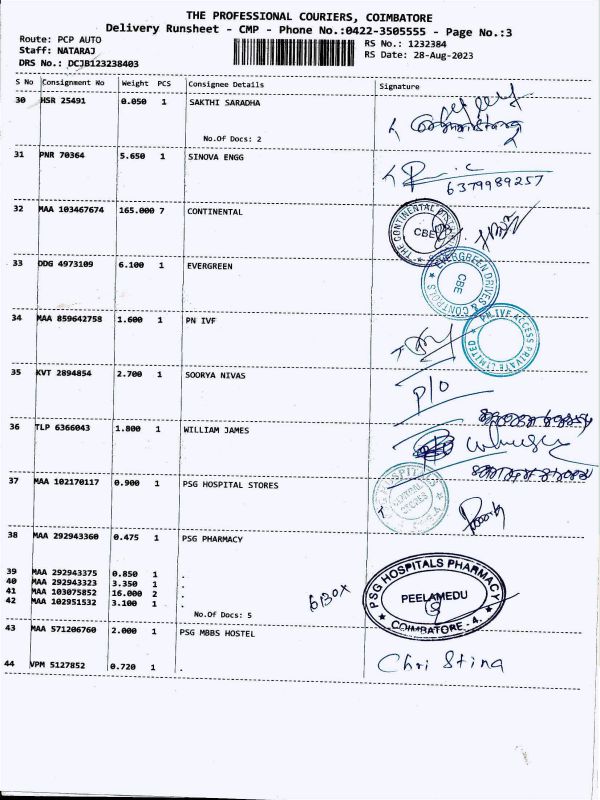 THE PROFESSIONAL COURIERS, COIMBATORE
Delivery Runsheet - CMP - Phone No.:0422-3505555 - Page No.:3
Route: PCP AUTO
RS No.: 1232384
Staff: NATARAJ
RS Date: 28-Aug-2023
DRS No.: DCJB123238403
S No Consignment No Weight PCS Consignee Details Signature
30 HSR 25491 0.050 1 SAKTHI SARADHA
No.Of Docs: 2
31 PNR 70364 5.650 1 SINOVA ENGG
6379989257
32 MAA 103467674 165.000 7 CONTINENTAL
THE CONTINENTAL
CBE
33 DDG 4973109 6.100 1 EVERGREEN
EVERGREEN DRIVES & CONTROLS
CBE
34 MAA 859642758 1.600 1 PN IVF
PN IVF ACCESS PRIVATE LIMITED
35 KVT 2894854 2.700 1 SOORYA NIVAS
P/O
36 TLP 6366043 1.800 1 WILLIAM JAMES
37 MAA 102170117 0.900 1 PSG HOSPITAL STORES
HOSPITALS
CENTRAL
STORES
38 MAA 292943360 0.475 1 PSG PHARMACY
39 MAA 292943375 0.850 1 .
40 MAA 292943323 3.350 1 .
41 MAA 103075852 16.000 2 .
42 MAA 102951532 3.100 1 .
No.Of Docs: 5
6 BOX
PSG HOSPITALS PHARMACY
PEELAMEDU
COIMBATORE - 4.
43 MAA 571206760 2.000 1 PSG MBBS HOSTEL
44 VPM 5127852 0.720 1 .
Christina